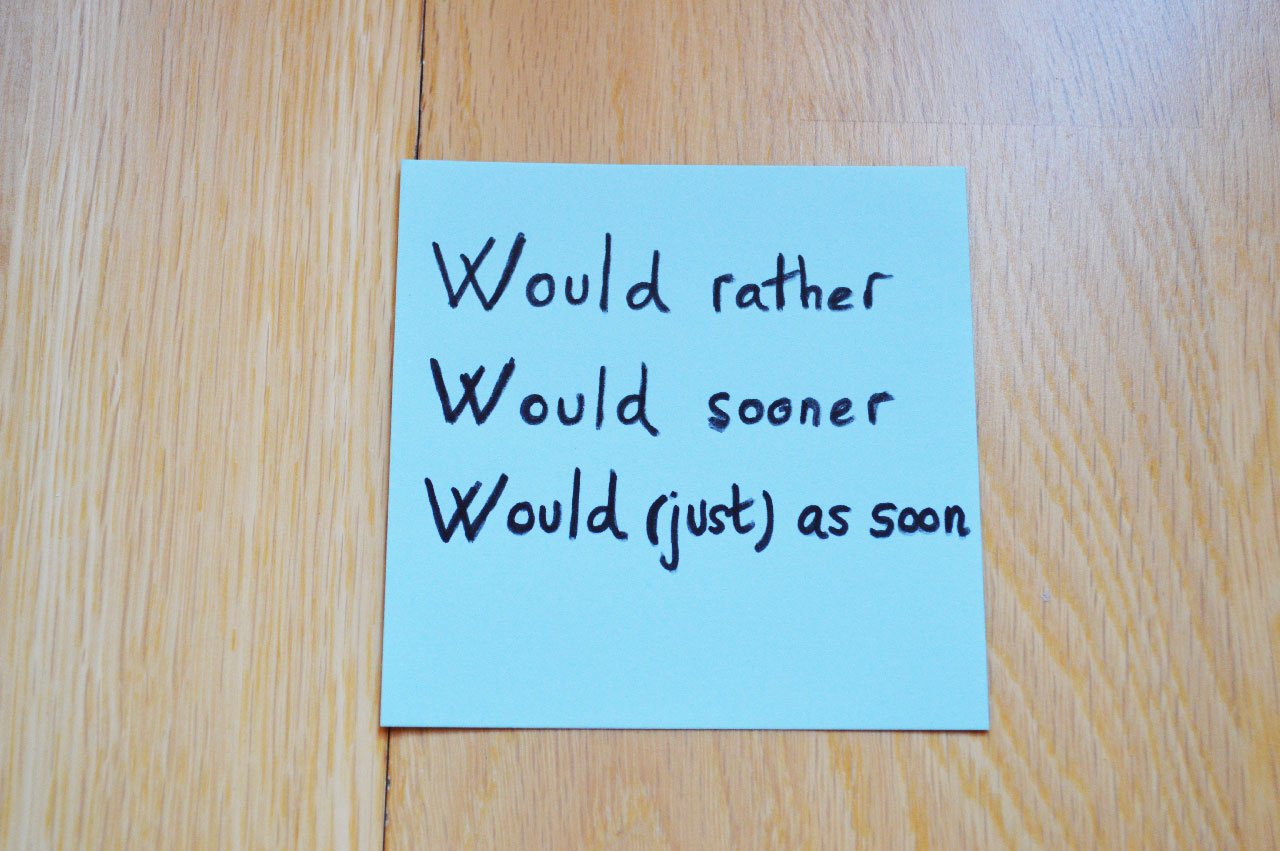 Would rather
Would sooner
Would (just) as soon